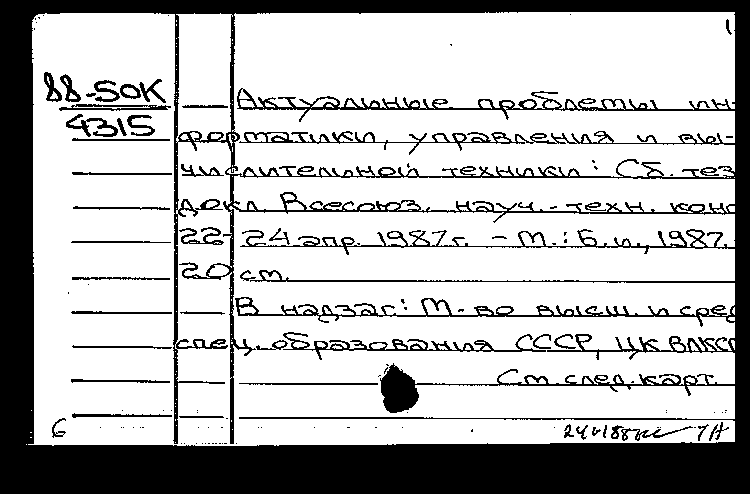 1
88-5OK
4315
Актуальные проблемы ин-
форматики, управления и вы-
числительной техники: Сб. тез
докл. Всесоюз. науч.-техн. конф
22-24 апр. 1987 г. - М.: Б.и., 1987.
20 см.
В надзаг: М-во высш. и сред
спец. образования СССР, ЦК ВЛКСМ
См. след. карт.
6